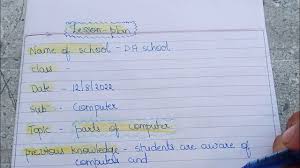 Lesson-plan
Name of school - DA school
class -
Date - 12/8/2022
Sub - Computer
Topic - parts of computer
previous knowledge - students are aware of
computers and